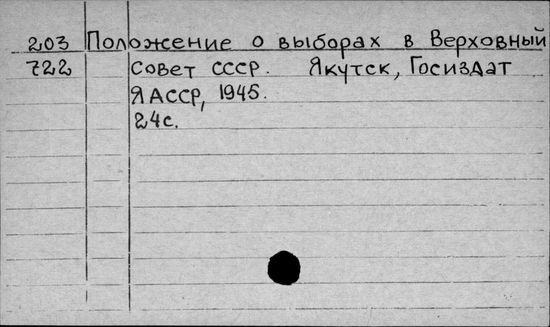 203 Положение о выборах в Верховный
722 Совет СССР. Якутск, Госиздат
ЯАССР, 1945.
24с.